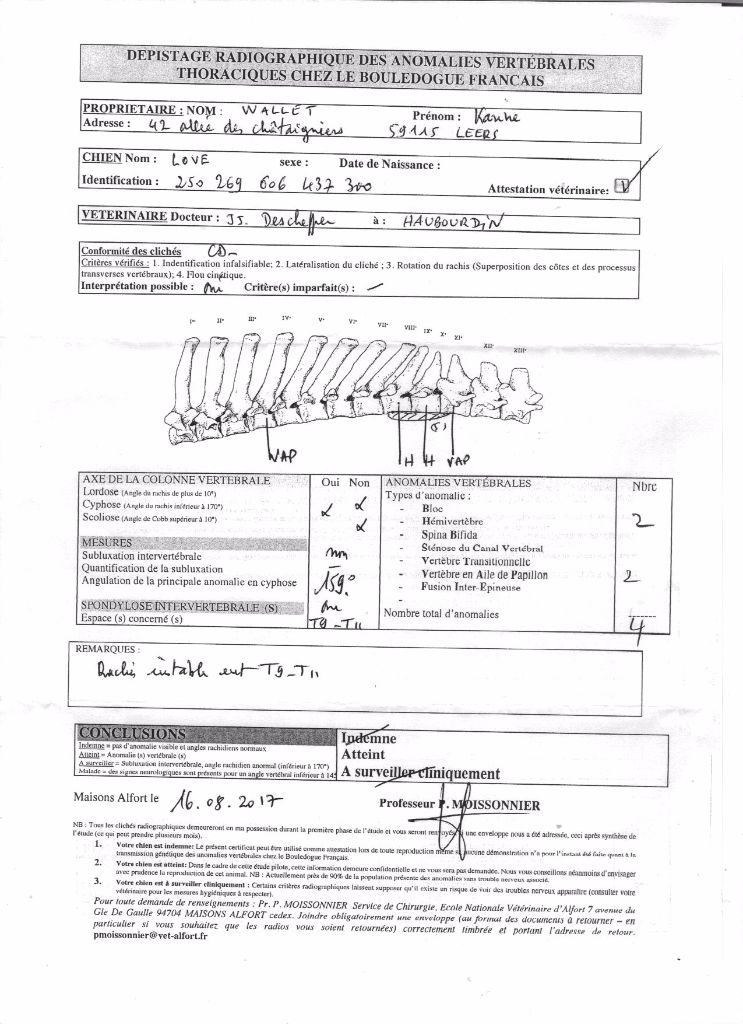 DEPISTAGE RADIOGRAPHIQUE DES ANOMALIES VERTÉBRALES
THORACIQUES CHEZ LE BOULEDOGUE FRANCAIS
PROPRIETAIRE : NOM : WALLET Prénom : Karine
Adresse : 42 allée des châtaigniers 59115 LEERS
CHIEN Nom : LOVE sexe : Date de Naissance :
Identification : 250 269 606 437 300 Attestation vétérinaire: V
VETERINAIRE Docteur : JS. Descheffer à : HAUBOURDIN
Conformité des clichés CD-
Critères vérifiés : 1. Indentification infalsifiable; 2. Latéralisation du cliché ; 3. Rotation du rachis (Superposition des côtes et des processus
transverses vertébraux); 4. Flou cinétique.
Interprétation possible : oui Critère(s) imparfait(s) : -
I° II° III° IV° V° VI° VII° VIII° IX° X° XI° XII° XIII°
VAP H H VAP
AXE DE LA COLONNE VERTEBRALE Oui Non
Lordose (Angle du rachis de plus de 10°)
Cyphose (Angle du rachis inférieur à 170°)
Scoliose (Angle de Cobb supérieur à 10°)
MESURES
Subluxation intervertébrale non
Quantification de la subluxation
Angulation de la principale anomalie en cyphose 159°
SPONDYLOSE INTERVERTEBRALE (S) oui
Espace (s) concerné (s) T9-T11
ANOMALIES VERTÉBRALES Nbre
Types d'anomalie :
- Bloc
- Hémivertèbre 2
- Spina Bifida
- Sténose du Canal Vertébral
- Vertèbre Transitionnelle
- Vertèbre en Aile de Papillon 2
- Fusion Inter-Epineuse
-
Nombre total d'anomalies 4
REMARQUES :
Rachis instable ent T9-T11
CONCLUSIONS
Indemne = pas d'anomalie visible et angles rachidiens normaux
Atteint = Anomalie (s) vertébrale (s)
A surveiller = Subluxation intervertébrale, angle rachidien anormal (inférieur à 170°)
Malade = des signes neurologiques sont présents pour un angle vertébral inférieur à 145
Indemne
Atteint
A surveiller cliniquement
Maisons Alfort le 16.08.2017 Professeur P. MOISSONNIER
NB : Tous les clichés radiographiques demeureront en ma possession durant la première phase de l'étude et vous seront renvoyés si une enveloppe nous a été adressée, ceci après synthèse de
l'étude (ce qui peut prendre plusieurs mois).
1. Votre chien est indemne: Le présent certificat peut être utilisé comme attestation lors de toute reproduction même si aucune démonstration n'a pour l'instant été faite quant à la
transmission génétique des anomalies vertébrales chez le Bouledogue Français.
2. Votre chien est atteint: Dans le cadre de cette étude pilote, cette information demeure confidentielle et ne vous sera pas demandée. Nous vous conseillons néanmoins d'envisager
avec prudence la reproduction de cet animal. NB : Actuellement près de 90% de la population présente des anomalies sans trouble nerveux associé.
3. Votre chien est à surveiller cliniquement : Certains critères radiographiques laissent supposer qu'il existe un risque de voir des troubles nerveux apparaître (consulter votre
vétérinaire pour les mesures hygiéniques à respecter).
Pour toute demande de renseignements : Pr. P. MOISSONNIER Service de Chirurgie, Ecole Nationale Vétérinaire d'Alfort 7 avenue du
Gle De Gaulle 94704 MAISONS ALFORT cedex. Joindre obligatoirement une enveloppe (au format des documents à retourner – en
particulier si vous souhaitez que les radios vous soient retournées) correctement timbrée et portant l'adresse de retour.
pmoissonnier@vet-alfort.fr